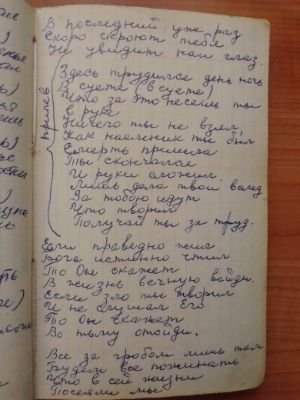 В последний уже раз
Скоро скроют тебя
Не увидит нам глаз.
Припев
Здесь трудился день ночь
В суете (в суете)
Что за это несешь ты
в руке
Ничего ты не взял,
Как наемник ты был
Смерть пришла
Ты скончался
И руки сложил.
Лишь дела твои вслед
За тобою идут
Что творил
Получай ты за труд.
Если праведно жил
Бога истинно чтил
То Он скажет
В жизнь вечную войди.
Если зло ты творил
И не слушал Его
То Он скажет
Во тьму отойди.
Все за гробом лишь там
Будем все пожинать
Что в сей жизни
Посеяли мы